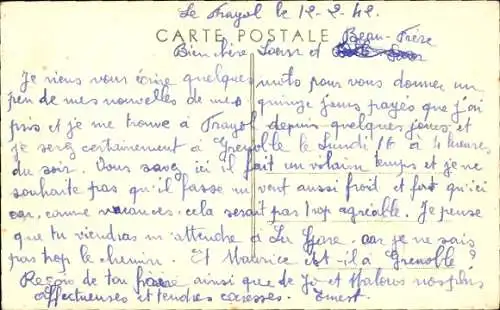 Le Trayol le 12-2-42.
CARTE POSTALE
Bien chère Soeur et Beau-Frère
Je viens vous écrire quelques mots pour vous donner un
peu de mes nouvelles de mes quinze jours payés que j'ai
pris et je me trouve à Trayol depuis quelques jours, et
je serez certainement à Grenoble le Lundi 16 à 4 heures
du soir. Vous savez ici il fait un vilain temps et je ne
souhaite pas qu'il fasse un vent aussi froid et fort qu'ici
car, comme vacances, cela serait pas trop agréable. Je pense
que tu viendras m'attendre à la Gare car je ne sais
pas trop le chemin. Et Maurice est-il à Grenoble?
Reçois de ton frère ainsi que de Jo et Malous nos plus
affectueuses et tendres caresses. Ernest.